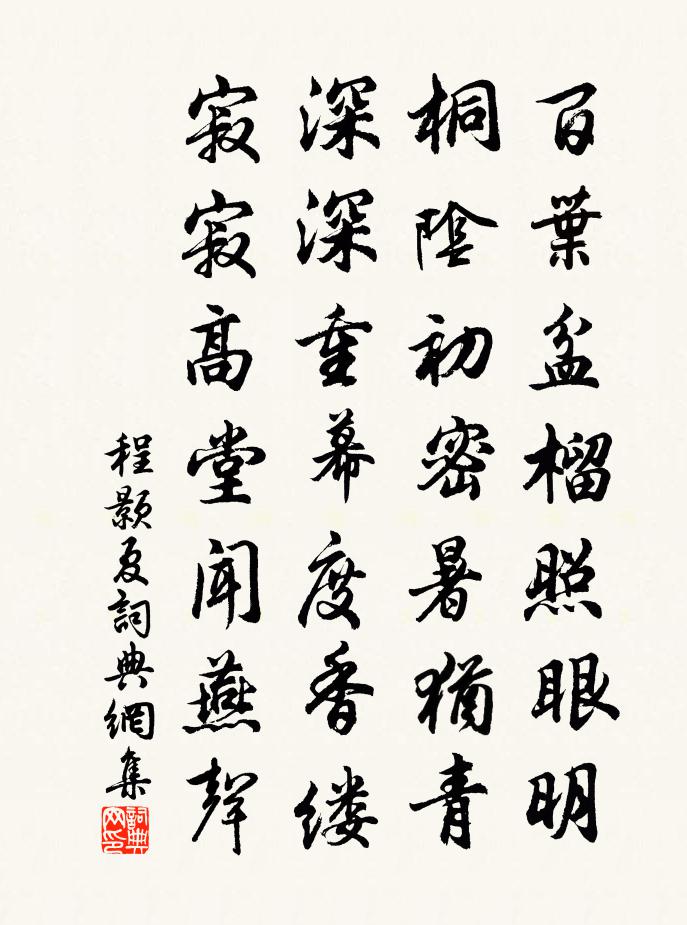 百葉盆榴照眼明
桐陰初密暑猶青
深深重幕度香缕
寂寂高堂聞燕聲
程顥夏詞典網集
詞典网印